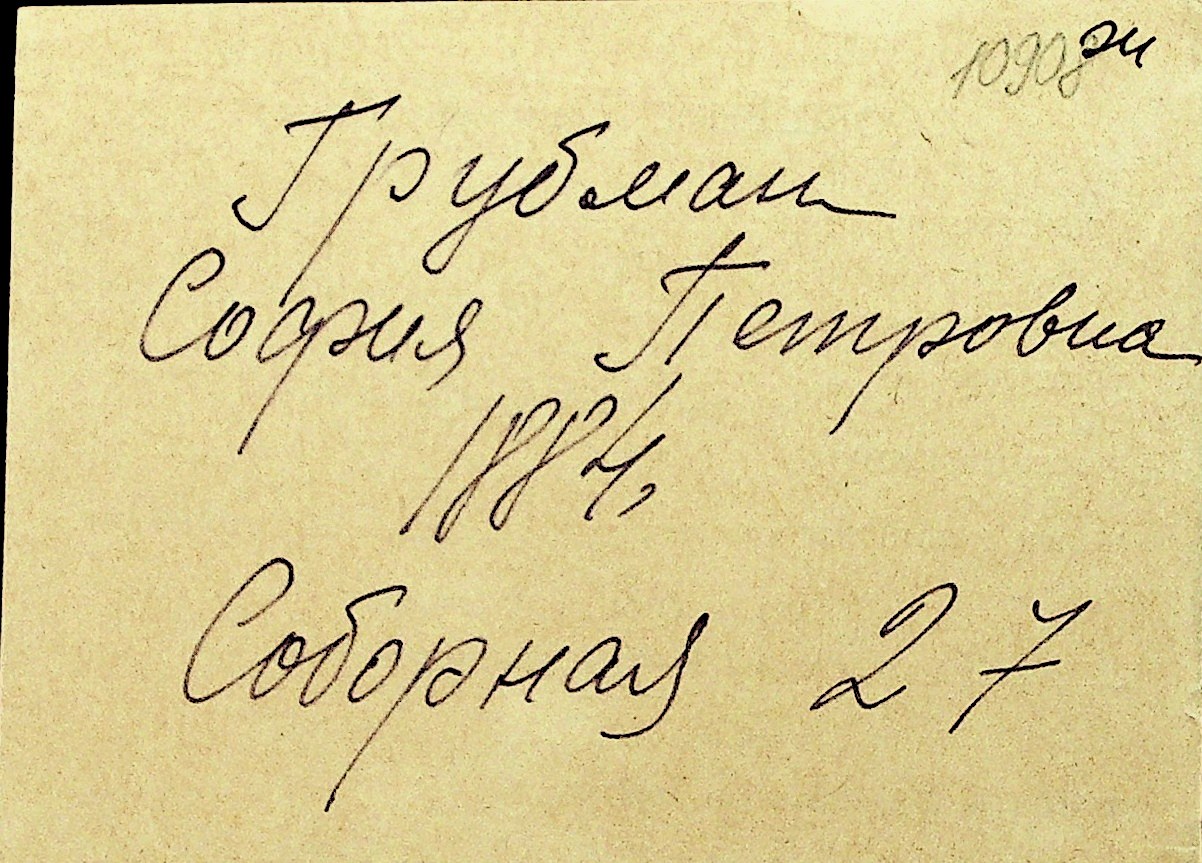 10908 эи
Грубман
София Петровна
1884,
Соборная 27